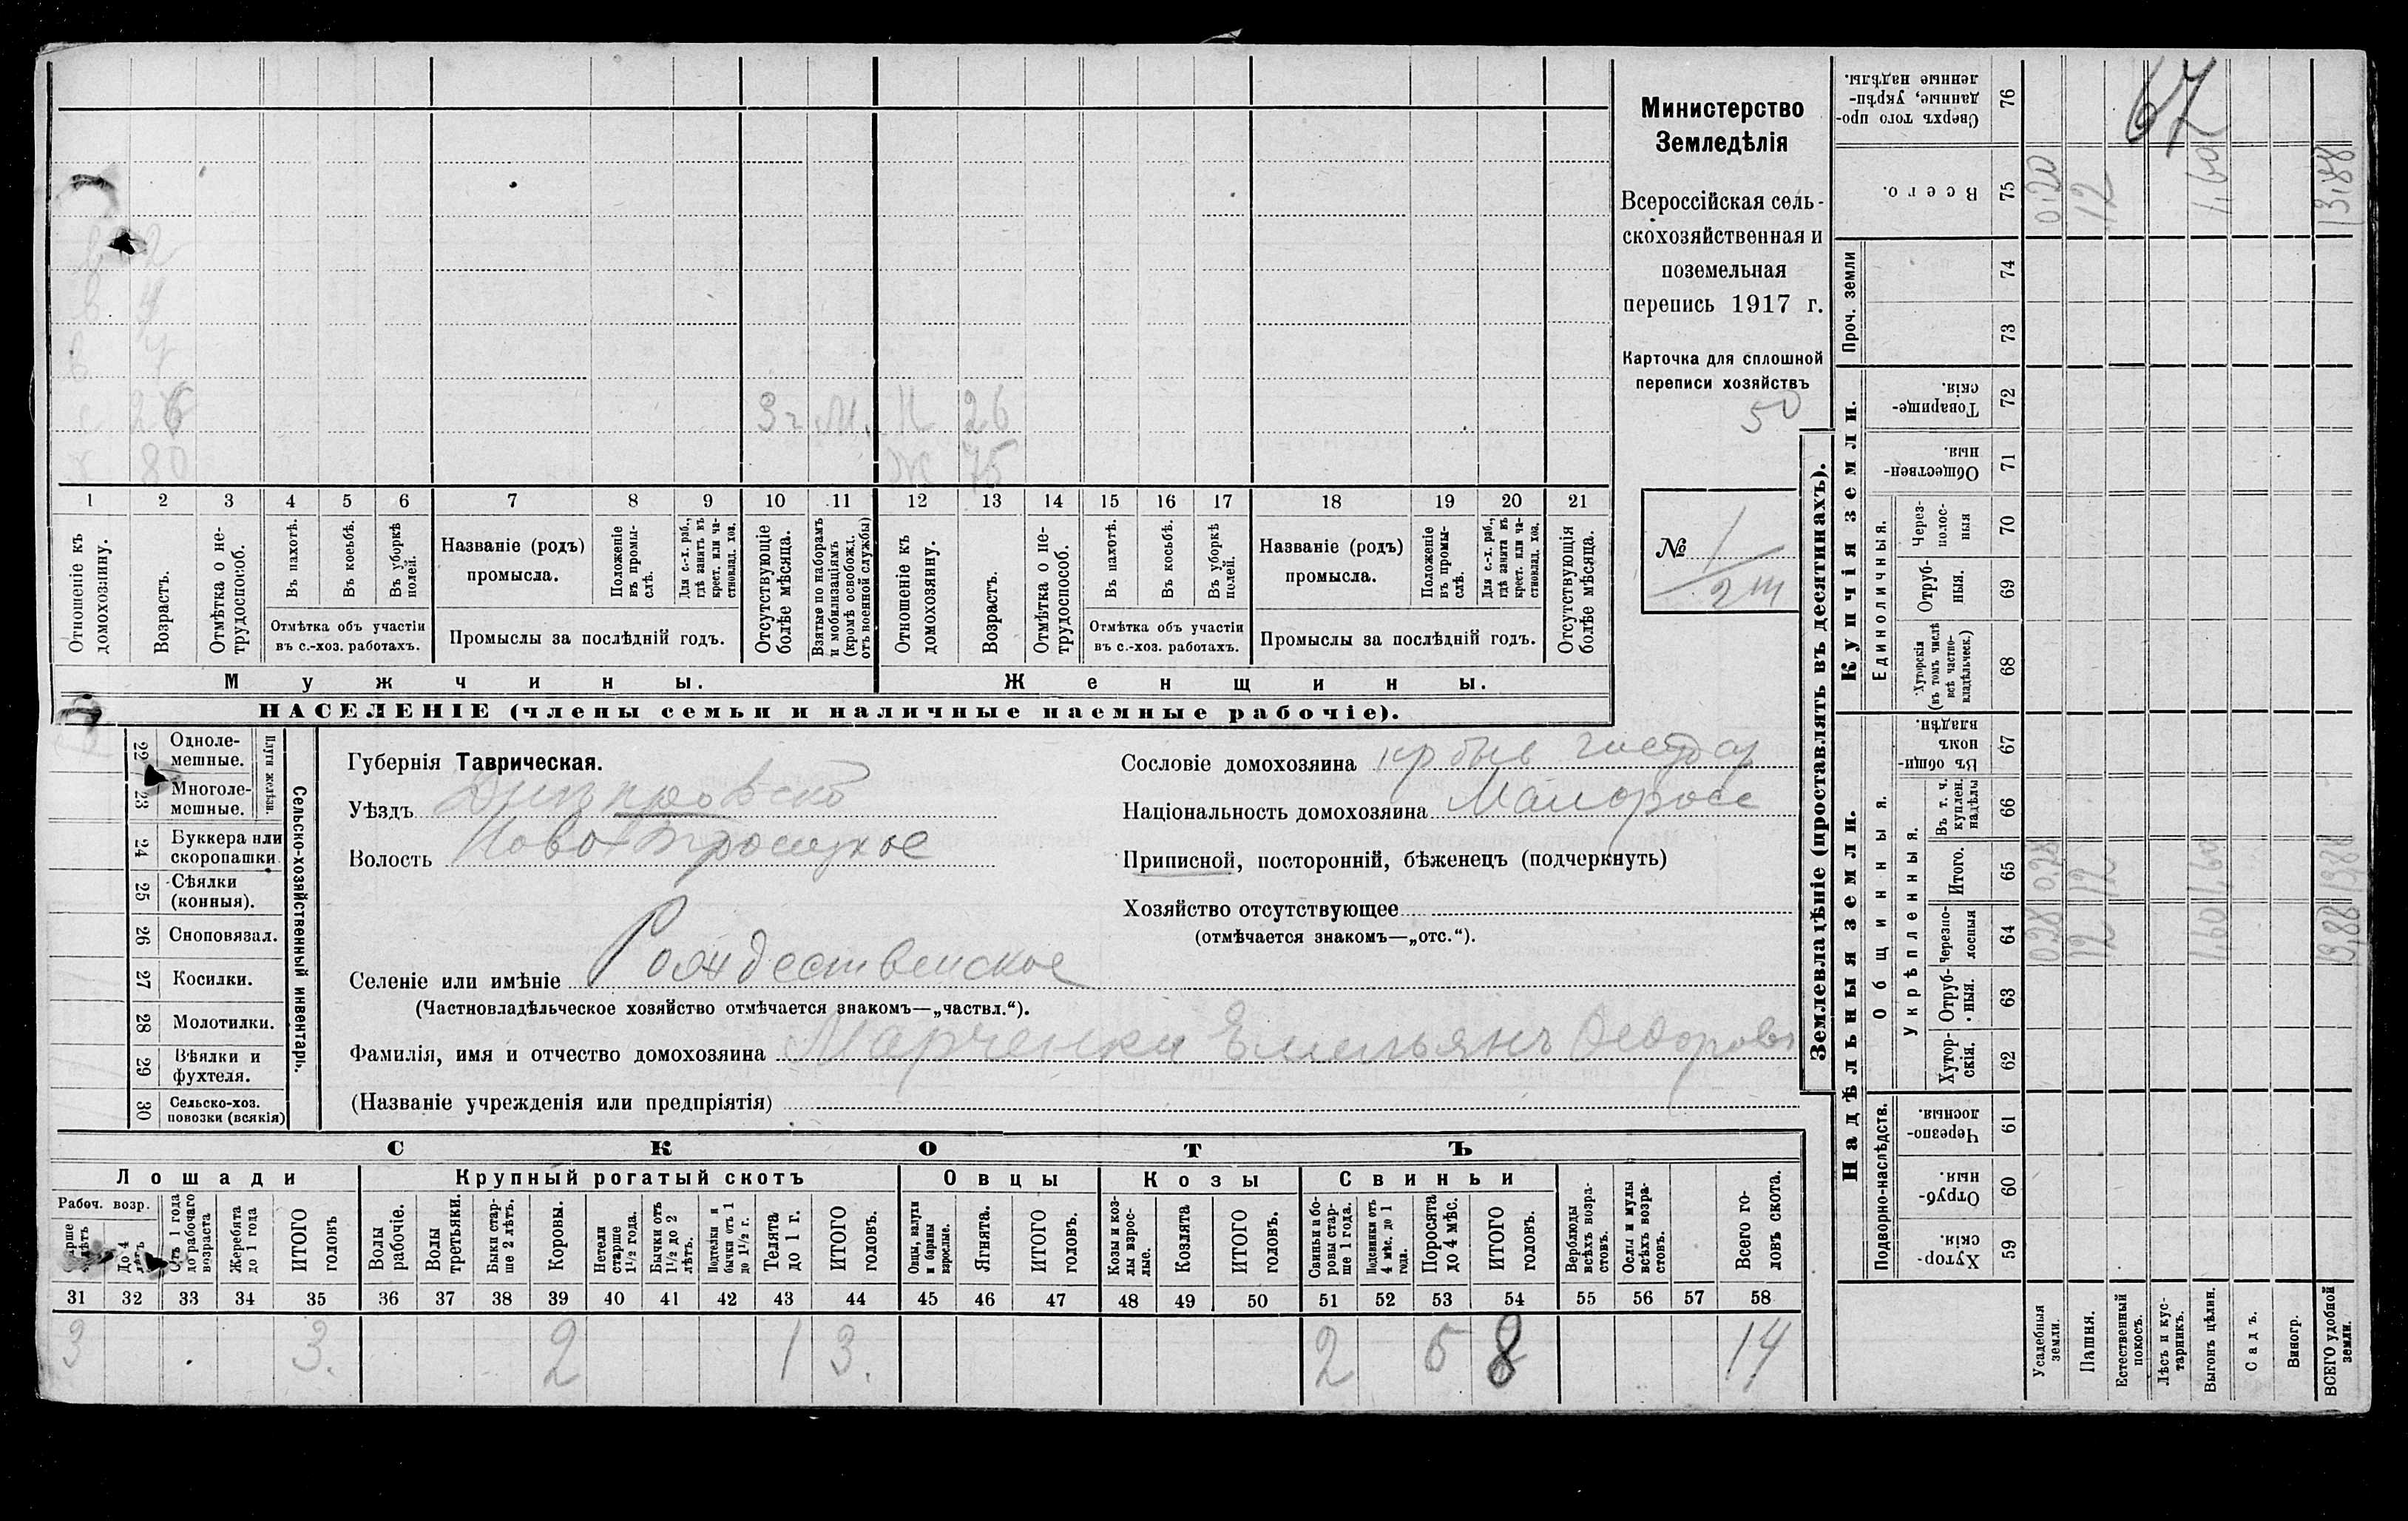 Министерство
Земледѣлія
Всероссійская сель-
скохозяйственная и
поземельная
перепись 1917 г.
Карточка для сплошной
переписи хозяйствъ
50
№ 1
67
в 4
26 3 г М. 26
80 Ж 75
1 2 3 4 5 6 7 8 9 10 11 12 13 14 15 16 17 18 19 20 21
Отношеніе къ домохозяину.
Возрастъ.
Отмѣтка о не-трудоспособ.
Въ пахотѣ.
Въ косьбѣ.
Въ уборкѣ полей.
Отмѣтка объ участіи
въ с.-хоз. работахъ.
Названіе (родъ)
промысла.
Положеніе въ промы-слѣ.
Для с.-х. раб., гдѣ занятъ въ крест. или ча-стновлад. хоз.
Промыслы за послѣдній годъ.
Отсутствующіе болѣе мѣсяца.
Взятые по наборамъ и мобилизаціямъ (кромѣ освобожд. отъ военной службы)
Отношеніе къ домохозяину.
Возрастъ.
Отмѣтка о не-трудоспособ.
Въ пахотѣ.
Въ косьбѣ.
Въ уборкѣ полей.
Отмѣтка объ участіи
въ с.-хоз. работахъ.
Названіе (родъ)
промысла.
Положеніе въ промы-слѣ.
Для с.-х. раб., гдѣ занята въ крест. или ча-стновлад. хоз.
Промыслы за послѣдній годъ.
Отсутствующія болѣе мѣсяца.
Мужчины.
Женщины.
НАСЕЛЕНІЕ (члены семьи и наличные наемные рабочіе).
Сельско-хозяйственный инвентарь.
Плуги желѣзн.
22 Одноле-мешные.
23 Многоле-мешные.
24 Буккера или скоропашки.
25 Сѣялки (конныя).
26 Сноповязал.
27 Косилки.
28 Молотилки.
29 Вѣялки и фухтеля.
30 Сельско-хоз. повозки (всякія)
Губернія Таврическая.
Уѣздъ Днѣпровско
Волость Ново Троицкое
Селеніе или имѣніе Рождественское
(Частновладѣльческое хозяйство отмѣчается знакомъ—„частвл.“).
Фамилія, имя и отчество домохозяина Марченко Емельянъ Федоровъ
(Названіе учрежденія или предпріятія)
Сословіе домохозяина кр быв госуд
Національность домохозяина Малоросс
Приписной, посторонній, бѣженецъ (подчеркнуть)
Хозяйство отсутствующее
(отмѣчается знакомъ—„отс.“).
СКОТЪ
Лошади
Крупный рогатый скотъ
Овцы
Козы
Свиньи
Рабоч. возр.
До 4 лѣтъ
Отъ 1 года до рабочаго возраста
Жеребята до 1 года
ИТОГО головъ
Волы рабочіе.
Волы третьяки.
Быки стар-ше 2 лѣтъ.
Коровы.
Нетели старше 1½ года.
Бычки отъ 1½ до 2 лѣтъ.
Подтелки и бычки отъ 1 до 1½ г.
Телята до 1 г.
ИТОГО головъ.
Овцы, валухи и бараны взрослые.
Ягнята.
ИТОГО головъ.
Козы и коз-лы взрос-лые.
Козлята
ИТОГО головъ.
Свиньи и бо-ровы стар-ше 1 года.
Подсвинки отъ 4 мѣс. до 1 года.
Поросята до 4 мѣс.
ИТОГО головъ.
Верблюды всѣхъ возра-стовъ.
Ослы и мулы всѣхъ возра-стовъ.
Всего го-ловъ скота.
31 32 33 34 35 36 37 38 39 40 41 42 43 44 45 46 47 48 49 50 51 52 53 54 55 56 57 58
3 3. 2 1 3. 2 6 8 14
Землевладѣніе (проставлять въ десятинахъ).
Купчія земли.
Надѣльныя земли.
Проч. земли
Единоличныя.
Общинныя.
Укрѣпленныя.
Подворно-наслѣдств.
Сверхъ того про-данные, укрѣп-ленные надѣлы. 76
Всего. 75 12 1,60 13,88
74
73
Товарище-скія. 72
Обществен-ныя. 71
Через-полос-ныя 70
Отруб-ныя. 69
Хуторскія (въ томъ числѣ всѣ частно-владѣльческ.) 68
Въ общин-номъ владѣн. 67
Въ т. ч. куплен. надѣлы 66
Итого. 65 0,28 12 1,60 13,88
Черезпо-лосныя 64 0,28 12 1,60 13,88
Отруб-ныя. 63
Хутор-скія. 62
Черезпо-лосныя. 61
Отруб-ныя. 60
Хутор-скія. 59
Усадебныя земли.
Пашня.
Естественный покосъ.
Лѣсъ и кус-тарникъ.
Выгонъ цѣлин.
Садъ.
Виногр.
ВСЕГО удобной земли.